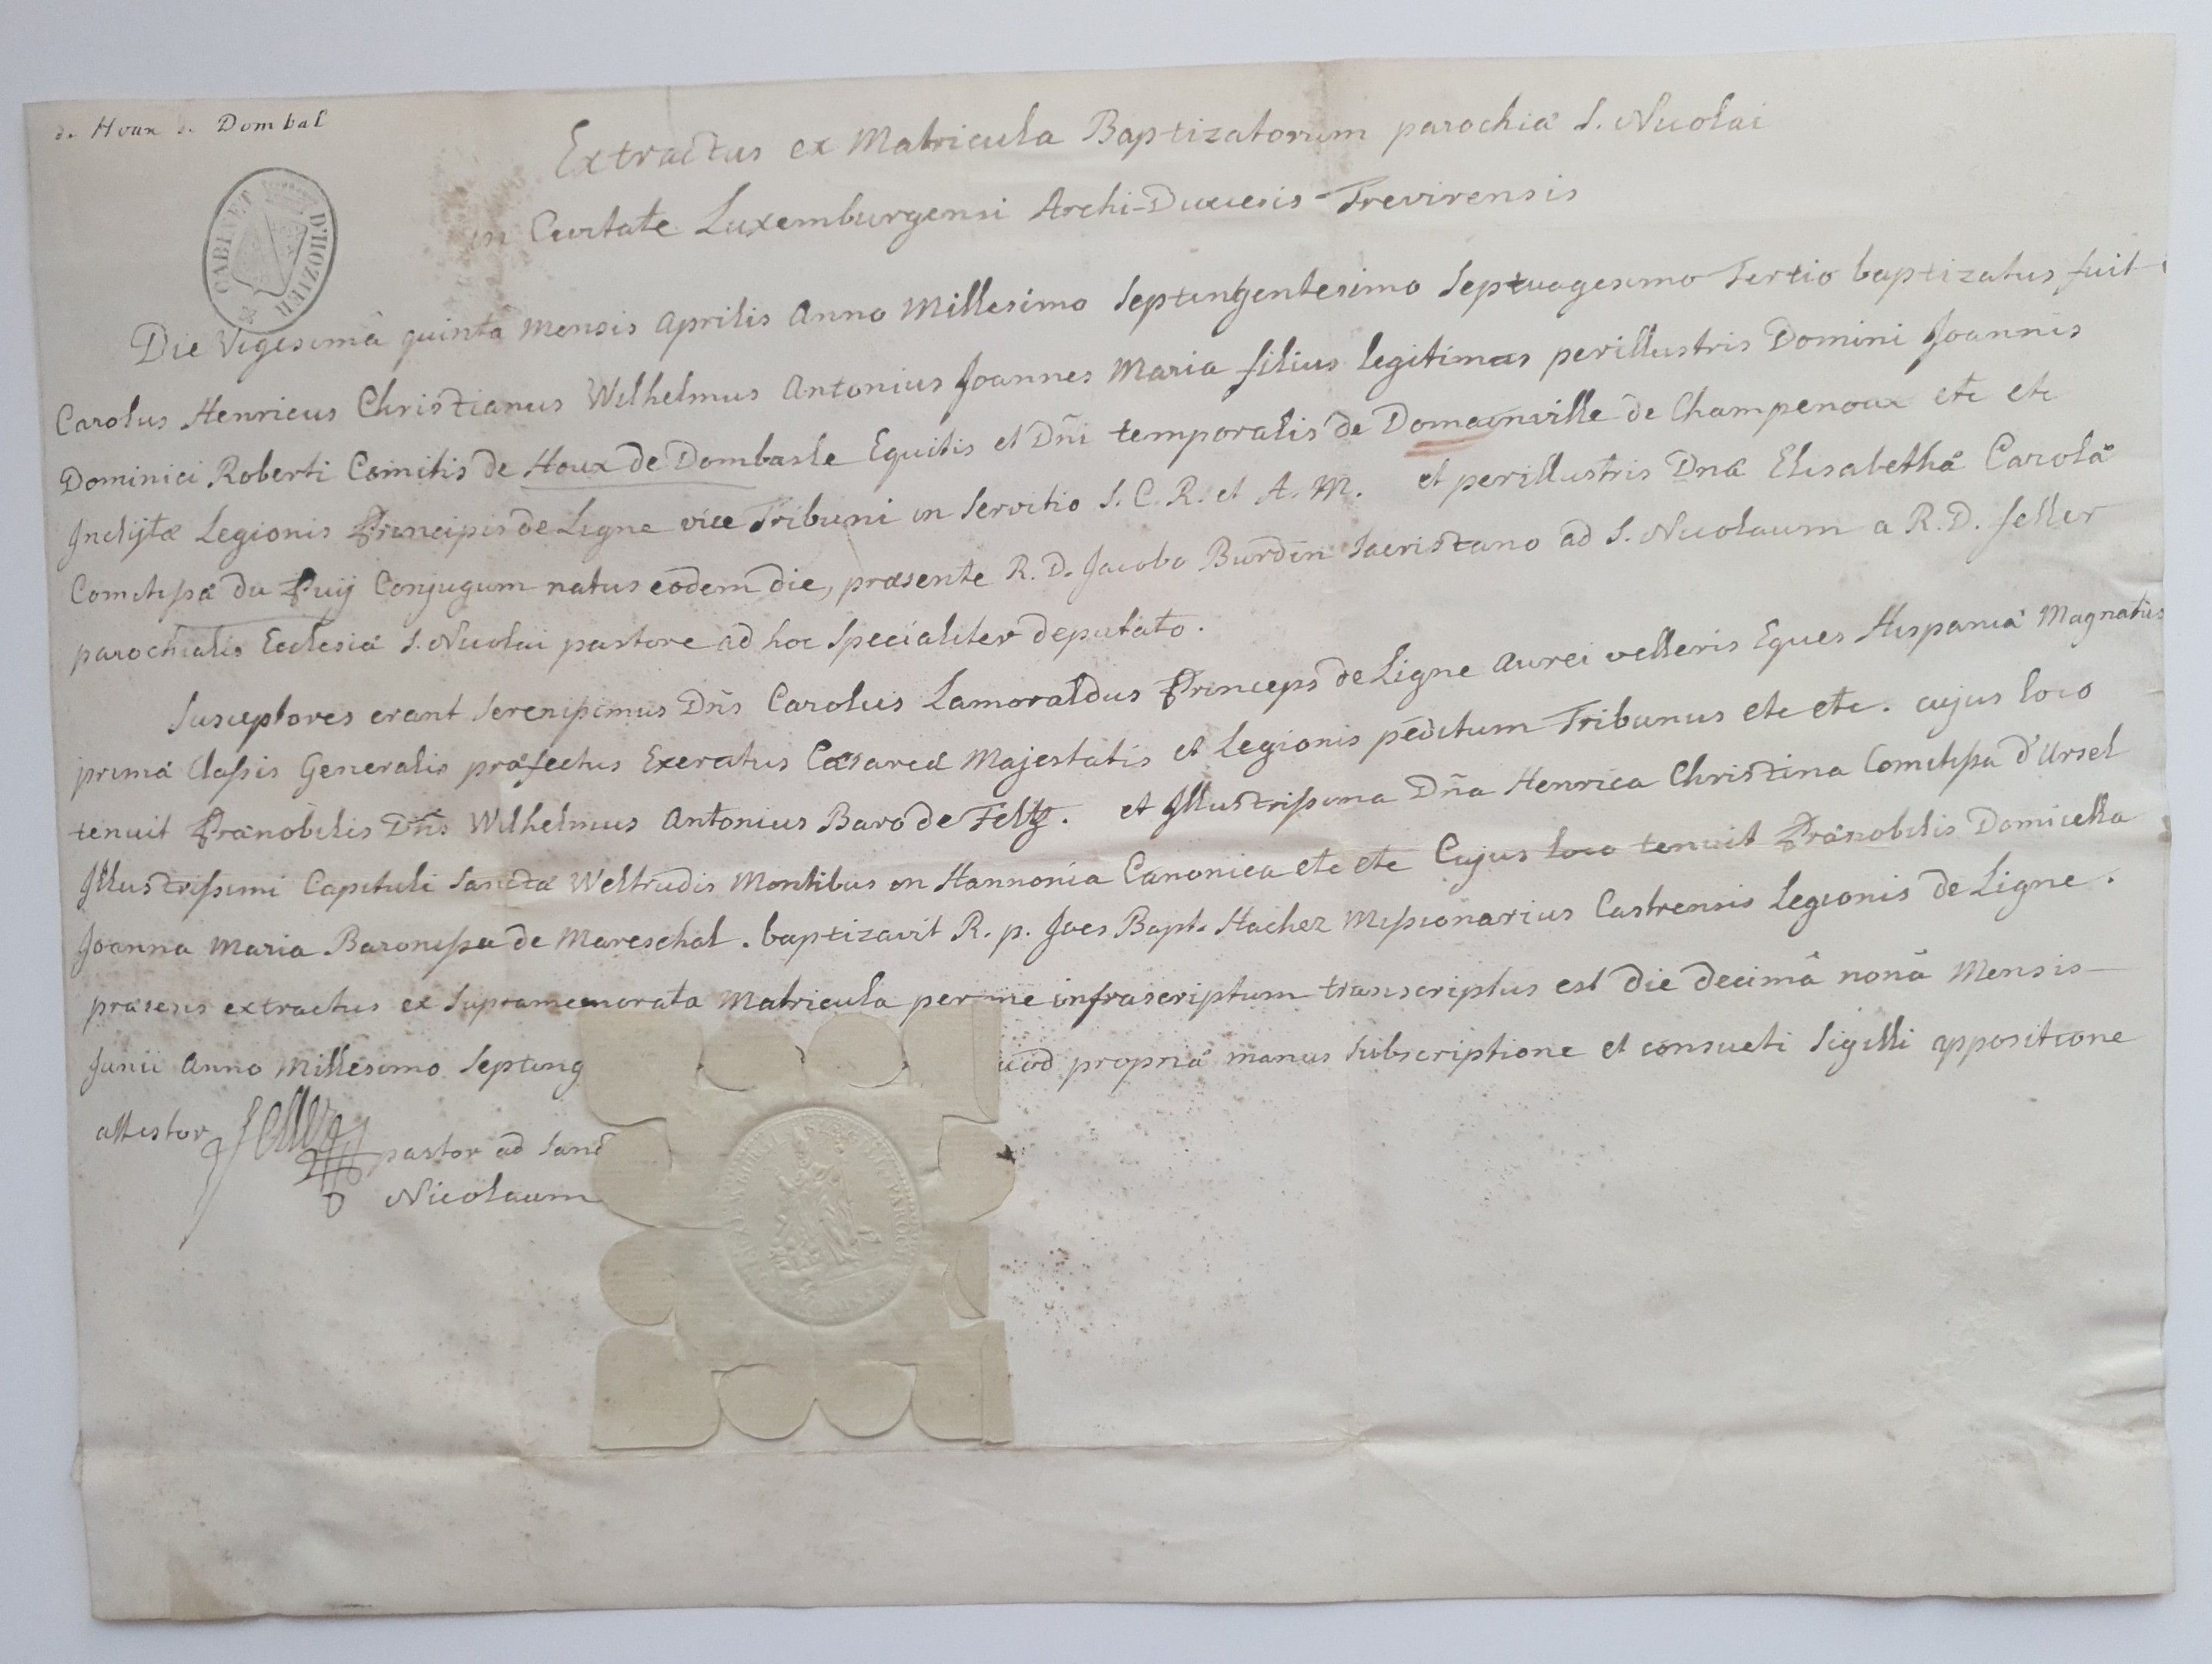 de Houx de Dombal
CABINET D'HOZIER
Extractus ex Matricula Baptizatorum parochiæ S. Nicolai
in Civitate Luxemburgensi Archi-Diœcesis Trevirensis
Die Vigesimâ quintâ mensis aprilis anno Millesimo Septingentesimo Septuagesimo Tertio baptizatus fuit
Carolus Henricus Christianus Wilhelmus Antonius Joannes Maria filius legitimus perillustris Domini Joannis
Dominici Roberti Comitis de Houx de Dombasle Equitis et Dñi temporalis de Domainville de Champenoux etc etc
Inclytæ Legionis Principis de Ligne vice Tribuni in Servitio S. C. R. et A. M. et perillustris Dnæ Elisabethæ Carolæ
Comitissæ du Puij Conjugum natus eodem die, præsente R. D. Jacobo Burden Sacristano ad S. Nicolaum a R. D. Feller
parochialis Ecclesiæ S. Nicolai pastore ad hoc Specialiter deputato.
Susceptores erant Serenissimus Dñs Carolus Lamoraldus Princeps de Ligne aurei velleris Eques Hispaniæ Magnatus
primæ Classis Generalis præfectus Exercitus Cæsareæ Majestatis et Legionis peditum Tribunus etc etc. cujus loco
tenuit Prænobilis Dñs Wilhelmus Antonius Baro de Feltz. et Illustrissima Dña Henrica Christina Comitissa d'Ursel
Illustrissimi Capituli Sanctæ Weltrudis Montibus in Hannonia Canonica etc etc Cujus loco tenuit Prænobilis Domicella
Joanna Maria Baronissa de Mareschal. baptizavit R. p. Joes Bapt. Hachez Missionarius Castrensis Legionis de Ligne.
præsens extractus ex Supramemorata Matricula per me infrascriptum transcriptus est die decimâ nonâ Mensis
Junii anno Millesimo Septing uod propriâ manus Subscriptione et consueti Sigilli appositione
attestor Feller pastor ad Sanct
Nicolaum